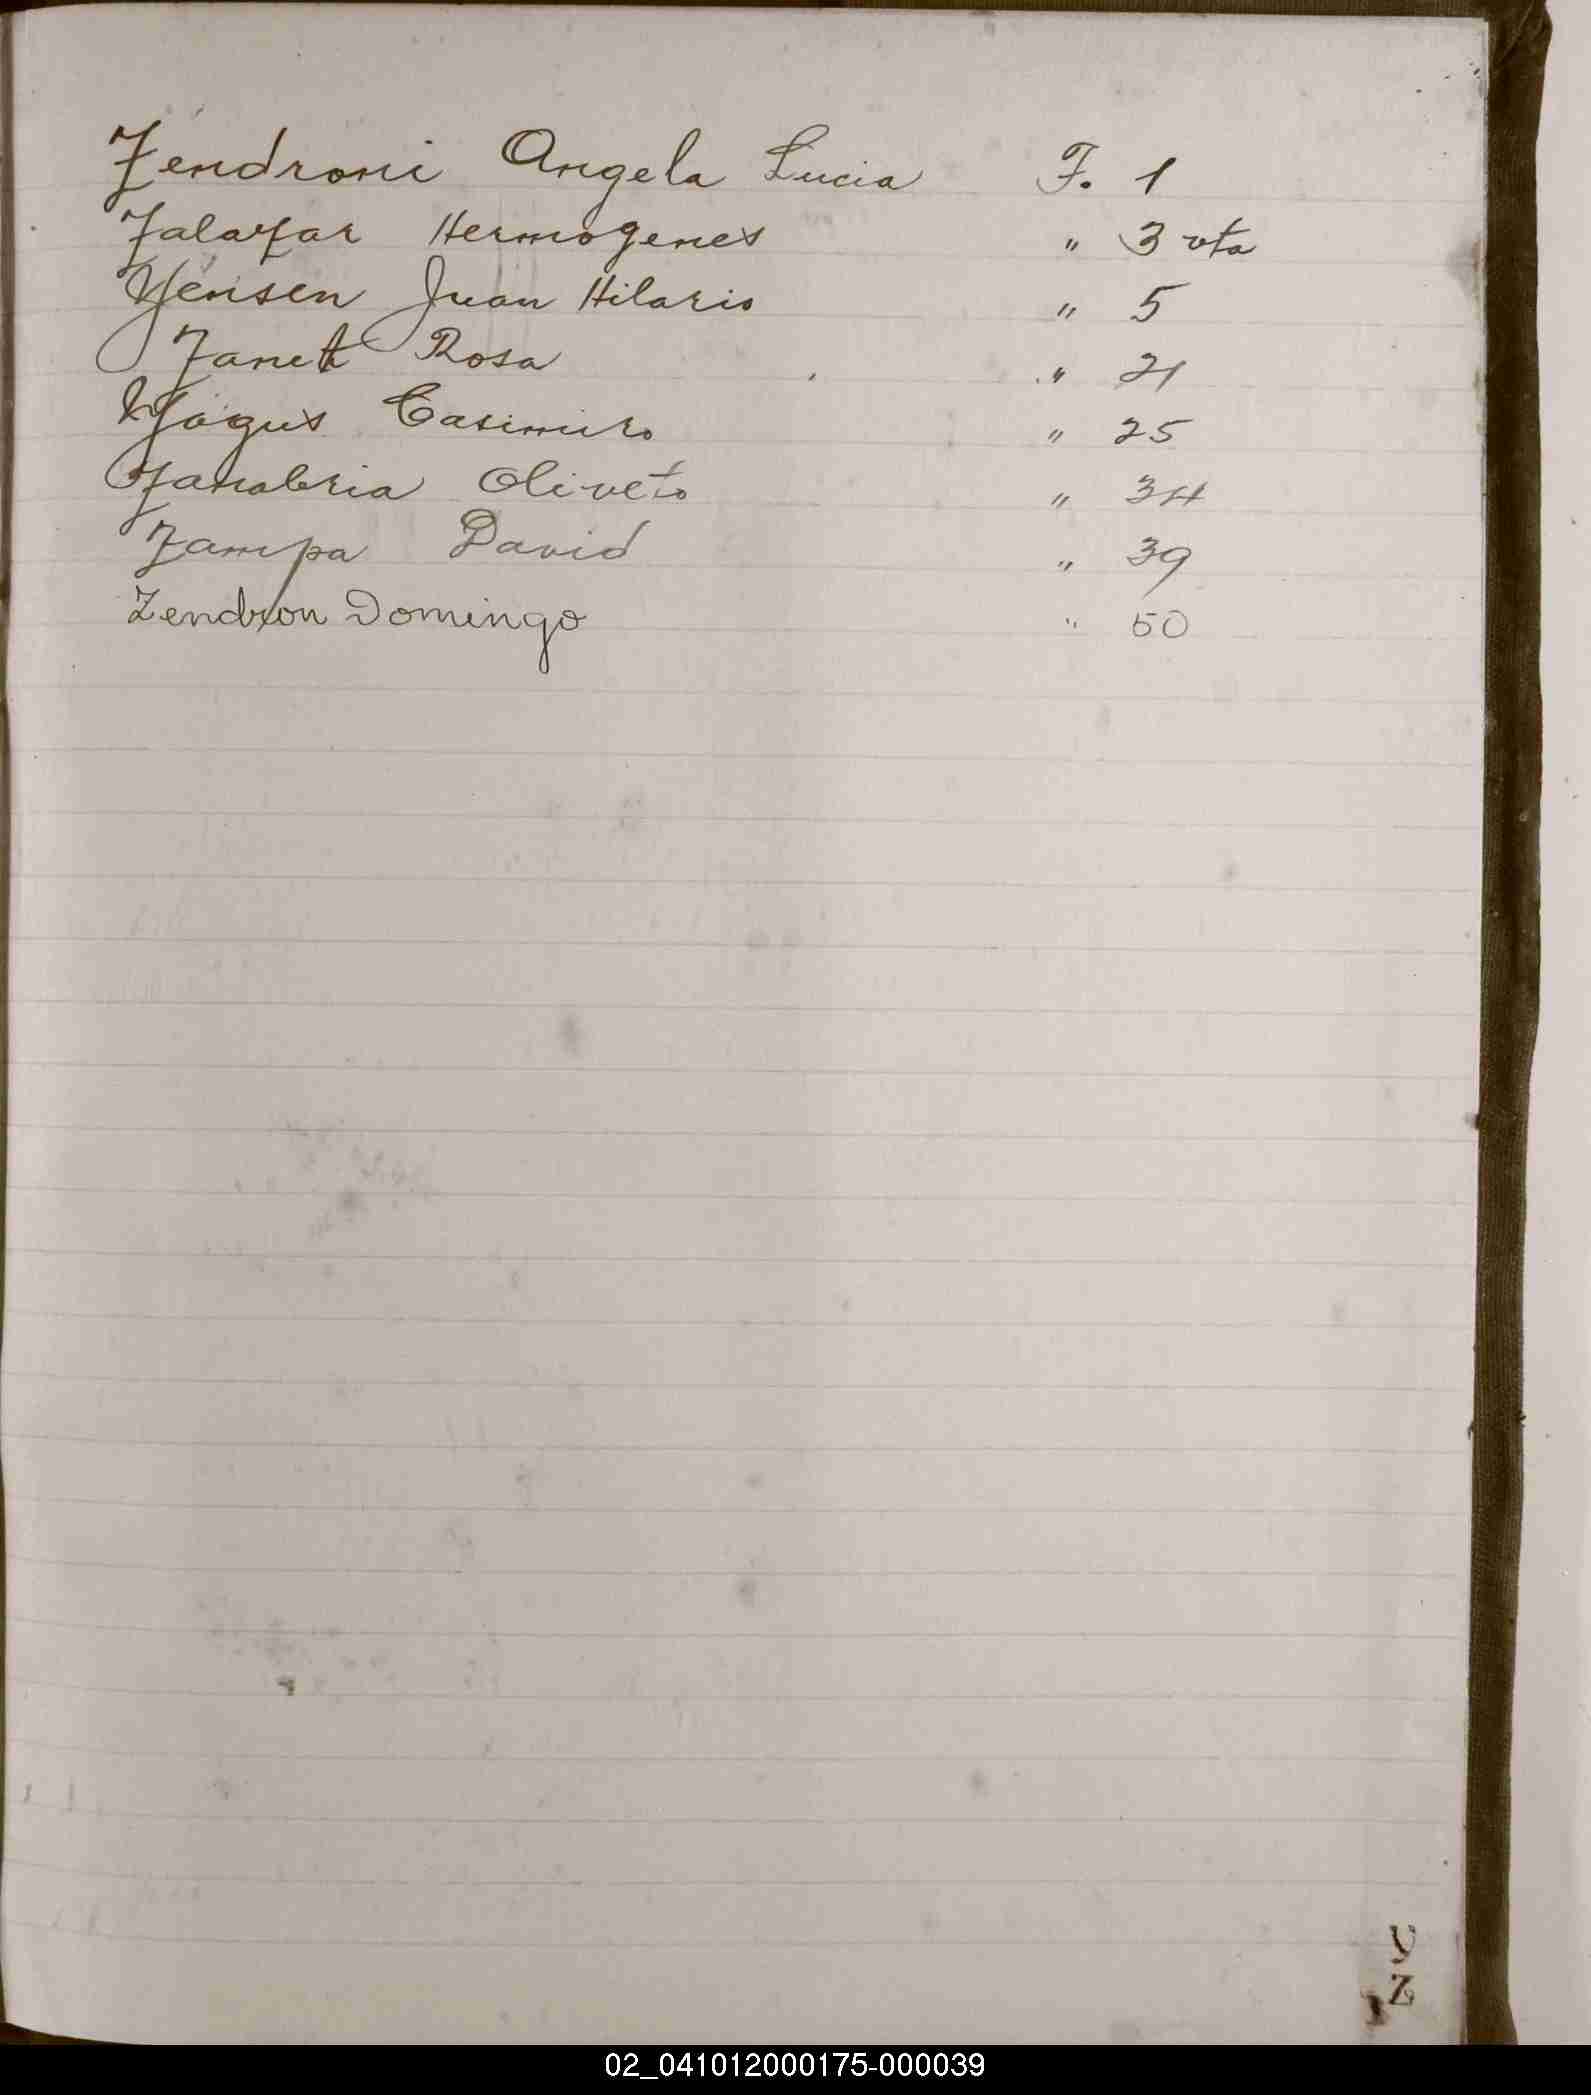 Zendroni Angela Lucia F. 1
Zalazar Hermogenes " 3 vta
Yensen Juan Hilario " 5
Zanet Rosa " 21
Yagus Casimiro " 25
Zanabria Oliveto " 34
Zampa David " 39
Zendron Domingo " 50
Y
Z
02_041012000175-000039